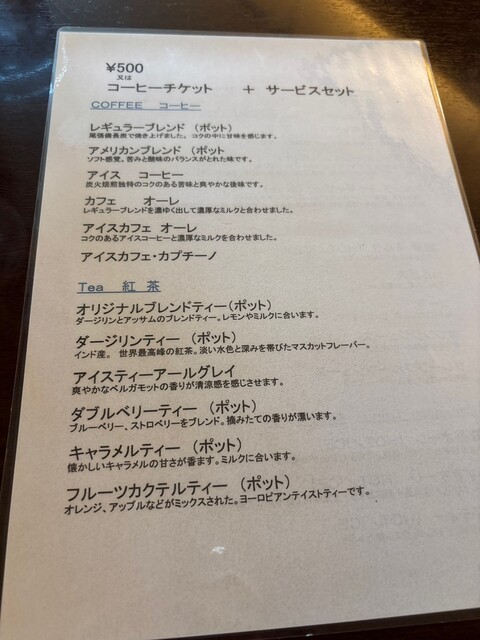 ¥500
又は
コーヒーチケット ＋ サービスセット
COFFEE コーヒー
レギュラーブレンド（ポット）
尾張備長炭で焼き上げました。コクの中に甘味を感じます。
アメリカンブレンド（ポット
ソフト感覚。苦みと酸味のバランスがとれた味です。
アイス コーヒー
炭火焙煎独特のコクのある苦味と爽やかな後味です。
カフェ オーレ
レギュラーブレンドを濃ゆく出して濃厚なミルクと合わせました。
アイスカフェ オーレ
コクのあるアイスコーヒーと濃厚なミルクを合わせました。
アイスカフェ・カプチーノ
Tea 紅 茶
オリジナルブレンドティー（ポット）
ダージリンとアッサムのブレンドティー。レモンやミルクに合います。
ダージリンティー （ポット）
インド産。 世界最高峰の紅茶。淡い水色と深みを帯びたマスカットフレーバー。
アイスティーアールグレイ
爽やかなベルガモットの香りが清涼感を感じさせます。
ダブルベリーティー （ポット）
ブルーベリー、ストロベリーをブレンド。摘みたての香りが漂います。
キャラメルティー （ポット）
懐かしいキャラメルの甘さが香ます。ミルクに合います。
フルーツカクテルティー （ポット）
オレンジ、アップルなどがミックスされた。ヨーロピアンテイストティーです。